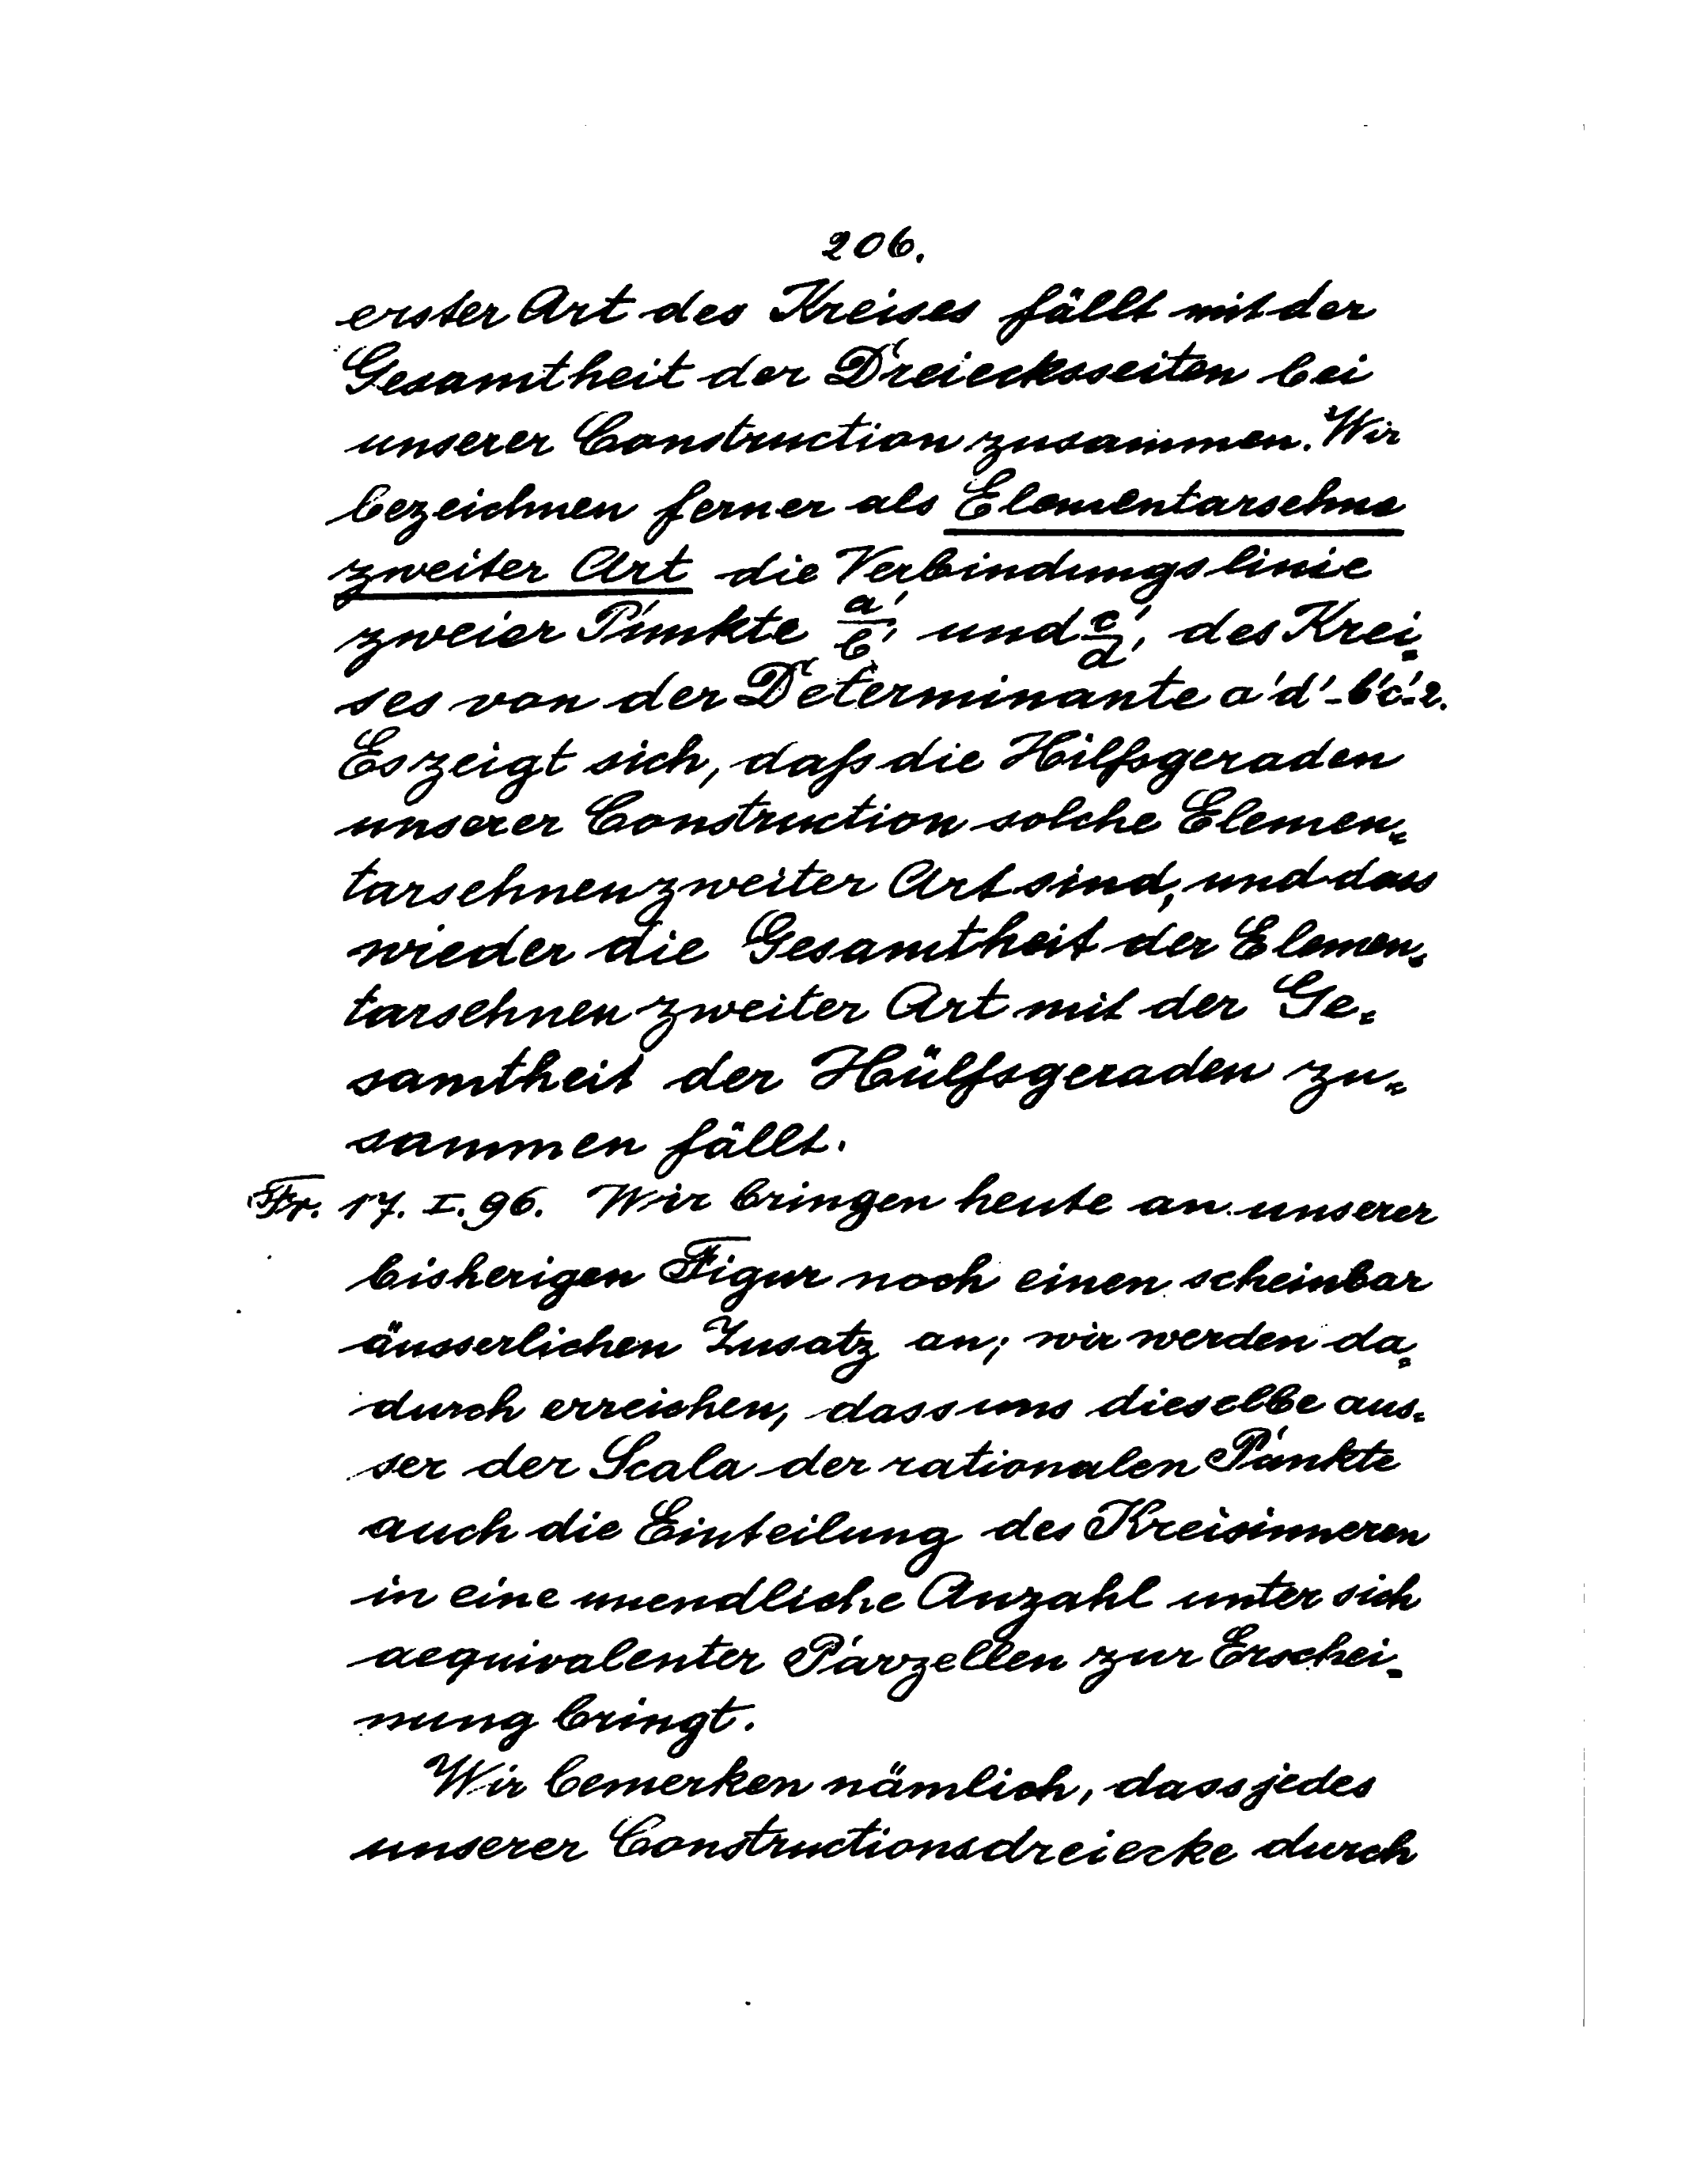 206.
erster Art des Kreises fällt mit der
Gesamtheit der Dreiecksseiten bei
unserer Construction zusammen. Wir
bezeichnen ferner als Elementarsehne
zweiter Art die Verbindungslinie
zweier Punkte a'/b' und c'/d' des Krei-
ses von der Determinante a'd'-b'c'=2.
Es zeigt sich, daſs die Hilfsgeraden
unserer Construction solche Elemen-
tarsehnen zweiter Art sind, und dass
wieder die Gesamtheit der Elemen-
tarsehnen zweiter Art mit der Ge-
samtheit der Hülfsgeraden zu-
sammen fällt.
Fr. 17. I. 96. Wir bringen heute an unserer
bisherigen Figur noch einen scheinbar
äusserlichen Zusatz an; wir werden da-
durch erreichen, dass uns dieselbe aus-
ser der Scala der rationalen Punkte
auch die Einteilung des Kreisinneren
in eine unendliche Anzahl unter sich
aequivalenter Parzellen zur Erschei-
nung bringt.
Wir bemerken nämlich, dass jedes
unserer Constructionsdreiecke durch